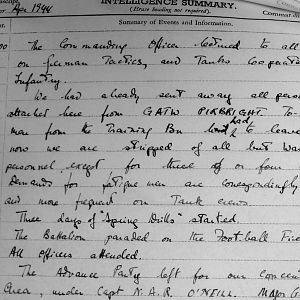 INTELLIGENCE SUMMARY.
Apr 1944
(Erase heading not required).
Summary of Events and Information.
The Commanding Officer lectured to all
on German Tactics, and Tanks Cooperation
Infantry.
We had already sent away all person
attached here from GATW PIRBRIGHT. To-
men from the Training Bn had to leave
now we are stripped of all but War
personnel, except for three or four
Demands for fatigue men are correspondingly
and more frequent on Tank crews.
Three days of "Spring Drills" started.
The Battalion paraded on the Football Fie
All officers attended.
The Advance Party left for our concen
Area, under Capt N.A.R. O'NEILL. Major